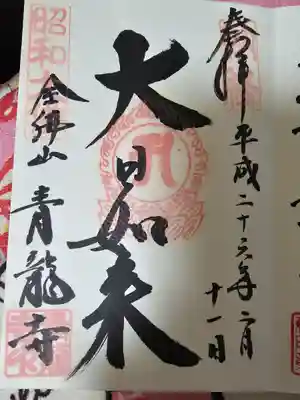 奉拝 平成二十六年二月
十一日
大日如来
昭和大
金龍山 青龍寺